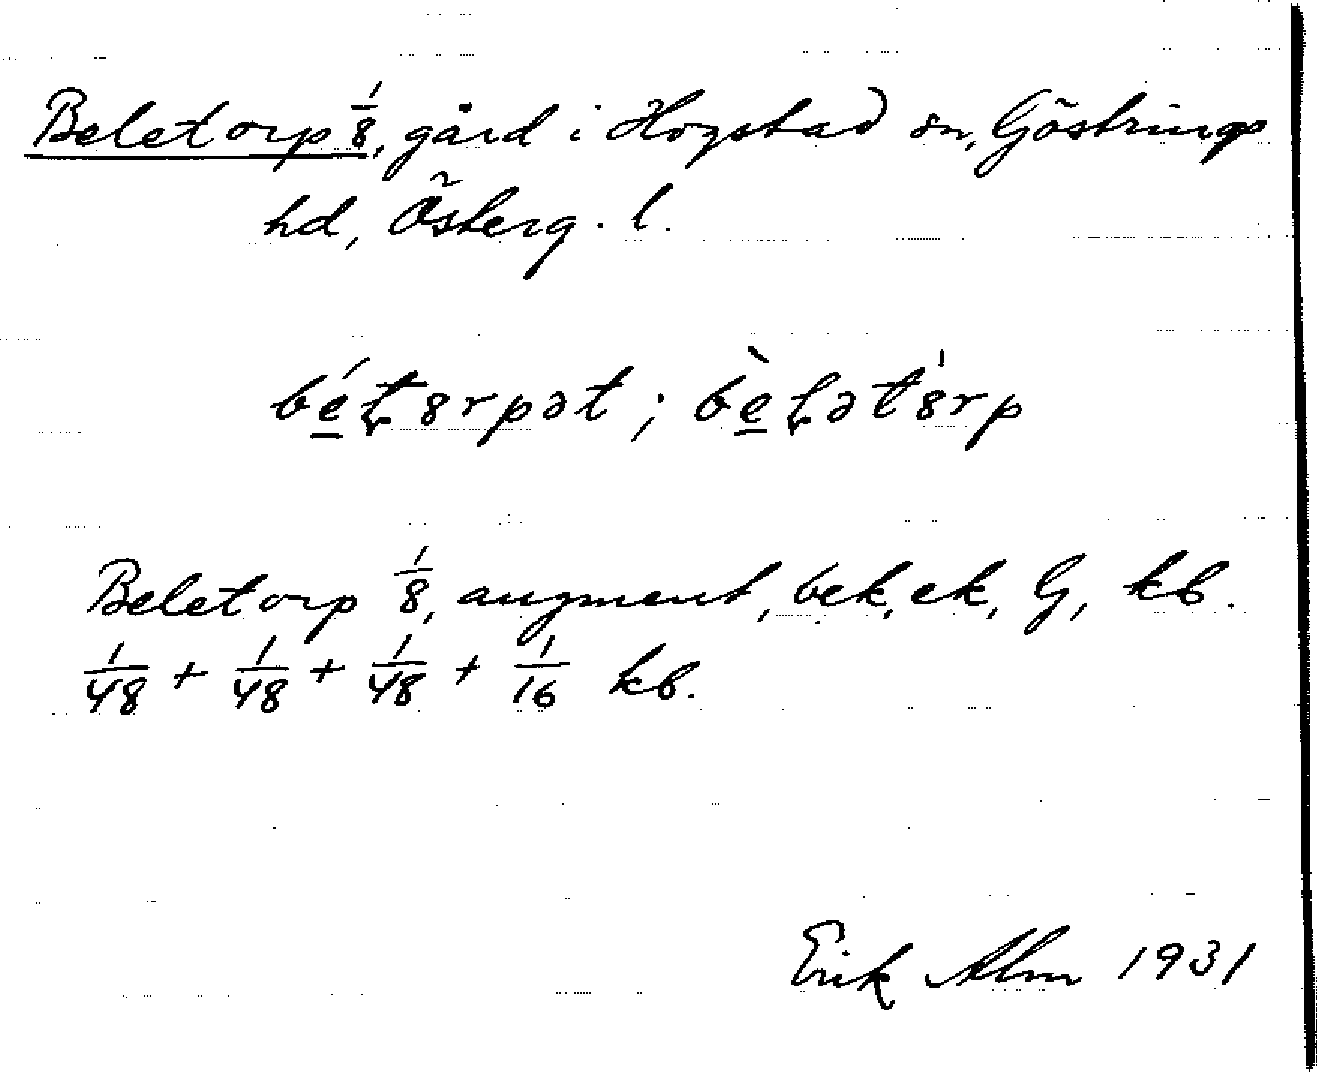 Beletorp 1/8, gård i Hogstad sn, Göstrings
hd, Österg. l.
Beletorp 1/8, augment, bek, ek, G, kb.
1/48 + 1/48 + 1/48 + 1/16 kb.
Erik Alm 1931